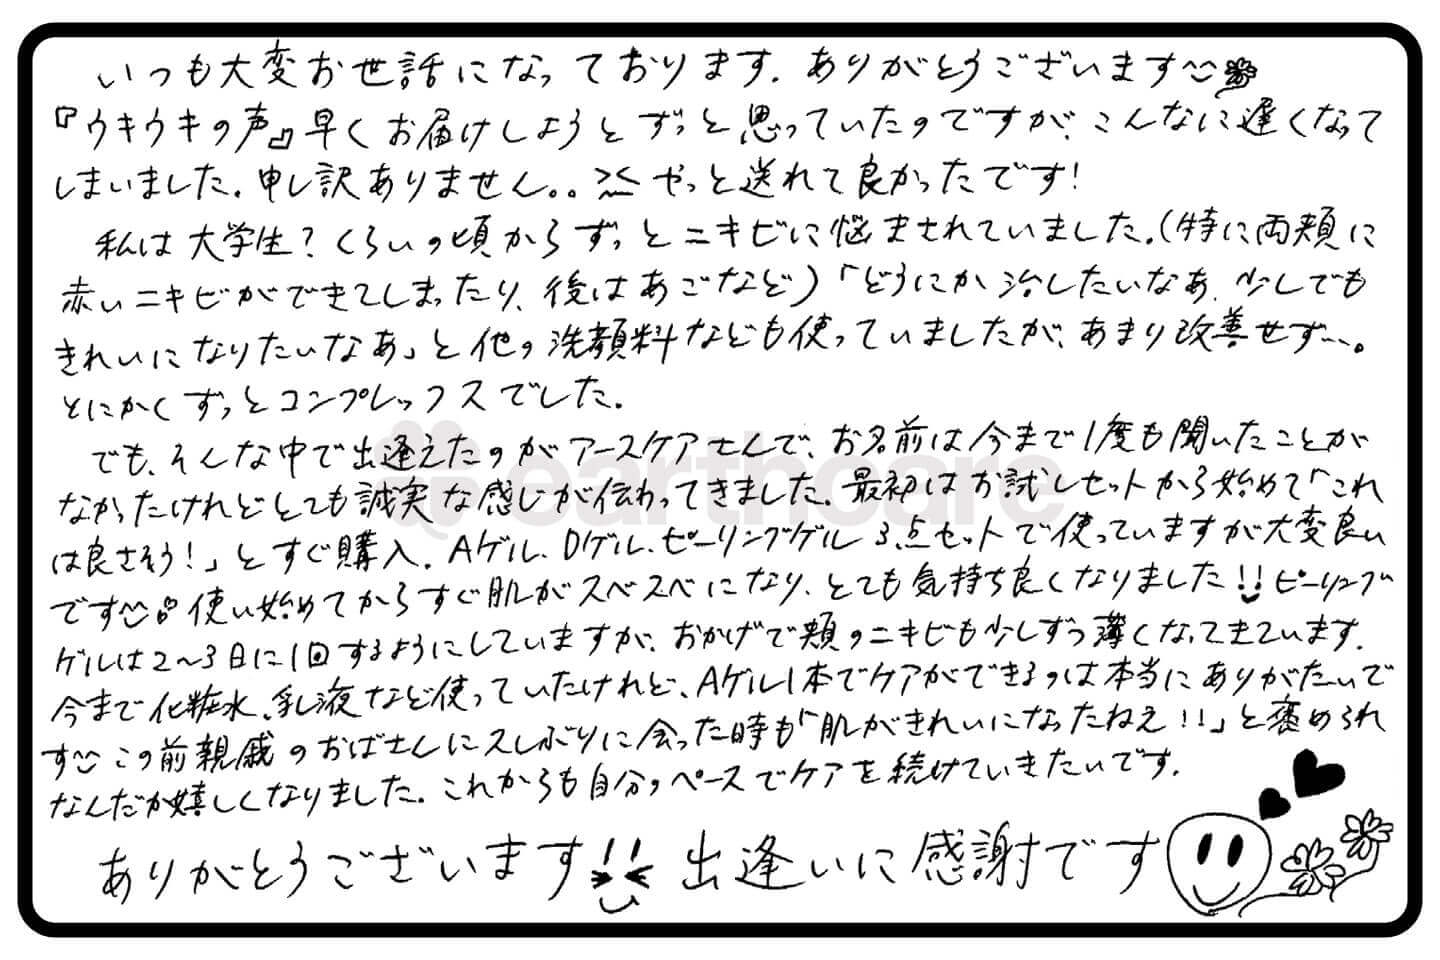 いつも大変お世話になっております. ありがとうございます
『ウキウキの声』早くお届けしようとずっと思っていたのですが、こんなに遅くなって
しまいました. 申し訳ありません。。 やっと送れて良かったです!
私は大学生?くらいの頃からずっとニキビに悩まされていました.(特に両頬に
赤いニキビができてしまったり、後はあごなど)「どうにか治したいなあ、少しでも
きれいになりたいなあ」と他の洗顔料なども使っていましたが、あまり改善せず…。
とにかくずっとコンプレックスでした.
でも、そんな中で出逢えたのがアースケアさんで、お名前は今まで1度も聞いたことが
なかったけれどとても誠実な感じが伝わってきました. 最初はお試しセットから始めて「これ
は良さそう!」とすぐ購入. Aゲル、Dゲル、ピーリングゲル3点セットで使っていますが大変良い
です 使い始めてからすぐ肌がスベスベになり、とても気持ち良くなりました!! ピーリング
ゲルは2〜3日に1回するようにしていますが、おかげで頬のニキビも少しずつ薄くなってきています.
今まで化粧水、乳液など使っていたけれど、Aゲル1本でケアができるのは本当にありがたいで
す この前親戚のおばさんに久しぶりに会った時も「肌がきれいになったねえ!!」と褒められ
なんだか嬉しくなりました. これからも自分のペースでケアを続けていきたいです.
ありがとうございます!! 出逢いに感謝です
earthcare